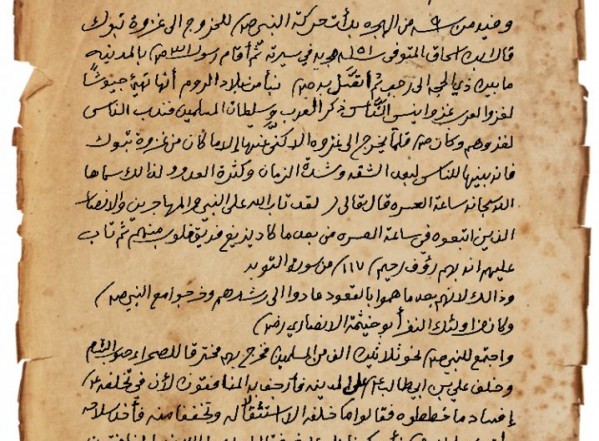 وفيه من سنة ٩ من الهجرة بدأت حركة النبي ص للخروج الى غزوة تبوك
قال ابن اسحاق المتوفى ١٥١ هـ في سيرته ثم أقام رسول الله ص بالمدينه
ما بين ذي الحجة الى رجب ثم من بلاد الروم أنها تهيئ جيوشاً
لغزو العرب غزوا ينسي الناس ذكر العرب وسلطان المسلمين فندب الناس
لغزوهم وكان ص قلما يخرج الى غزوه الا كنى عنها إلا ما كان من غزوة تبوك
فانه بينها للناس لبعد الشقه وشدة الزمان وكثرة العدو ولذالك سماها
الله سبحانه ساعة العسره قال تعالى ( لقد تاب الله على النبي والمهاجرين والانصار
الذين اتبعوه في ساعة العسره من بعد ما كاد يزيغ فريق قلوب منهم ثم تاب
عليهم انه بهم رؤوف رحيم ) ١١٧ من سورة التوبه
وذالك لانهم بعد ما هموا بالقعود عادوا الى رشدهم وخرجوا مع النبي ص
وكان من اولئك النفر أبو خيثمة الانصاري رض
واجتمع للنبي ص نحو ثلاثين الف من المسلمين فخرج بهم مخترقا للصحراء صوب الشام
وخلف علي بن ابي طالب على المدينه فأرجف به المنافقون لأن في تخلفه
إفساد ما خططوه فقالوا ما خلفه الا استثقالا له وتخففا منه فأخذ سلاحه